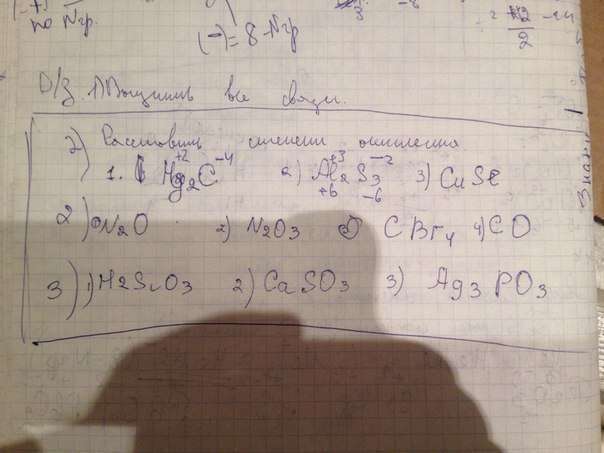 по Nгр.
(-) = 8 - Nгр
2
Д/З. 1) Выучить все связи.
2) Расставить степени окисления
1. Hg2C +2 -4 2) Al2S3 +3 -2 +6 -6 3) CuSe
2) N2O 2) N2O3 3) CBr4 4) CO
3) 1) H2SiO3 2) CaSO3 3) Ag3PO3